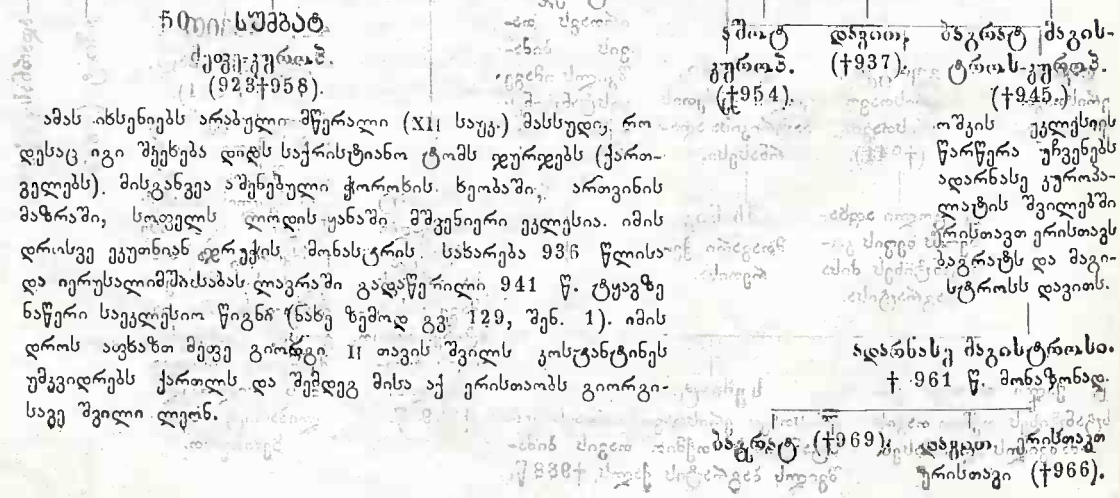 სუმბატ
მეფე-კუროპ.
(923†958).
ამას იხსენიებს არაბული მწერალი (XII საუკ.) მასსუდი, რო
დესაც იგი შეეხება დიდს საქრისტიანო ტომს ჯურჯებს (ქართ-
ველებს). მისგანვეა აშენებული ჭოროხის ხეობაში, ართვინის
მაზრაში, სოფელს ლოდის-ყანაში მშვენიერი ეკლესია. იმის
დროისვე ეკუთნიან ჯრუჭის მონასტრის სახარება 936 წლისა
და იერუსალიმში საბას ლავრაში გადაწერილი 941 წ. ტყავზე
ნაწერი საეკლესიო წიგნი (ნახე ზემოდ გვ. 129, შენ. 1). იმის
დროს აფხაზთ მეფე გიორგი II თავის შვილს კოსტანტინეს
უმკვიდრებს ქართლს და შემდეგ მისა აქ ერისთაობს გიორგი-
სავე შვილი ლეონ.
აშოტ
კუროპ.
(†954).
დავით
(†937).
ბაგრატ მაგის-
ტროს-კუროპ.
(†945.)
ოშკის ეკლესიის
წარწერა უჩვენებს
ადარნასე კუროპა-
ლატის შვილებში
ერისთავთ ერისთავს
ბაგრატს და მაგი-
სტროსს დავითს.
ადარნასე მაგისტროსი.
† 961 წ. მონაზონად.
ბაგრატ (†969).
დავით ერისთავთ
ერისთავი (†966).